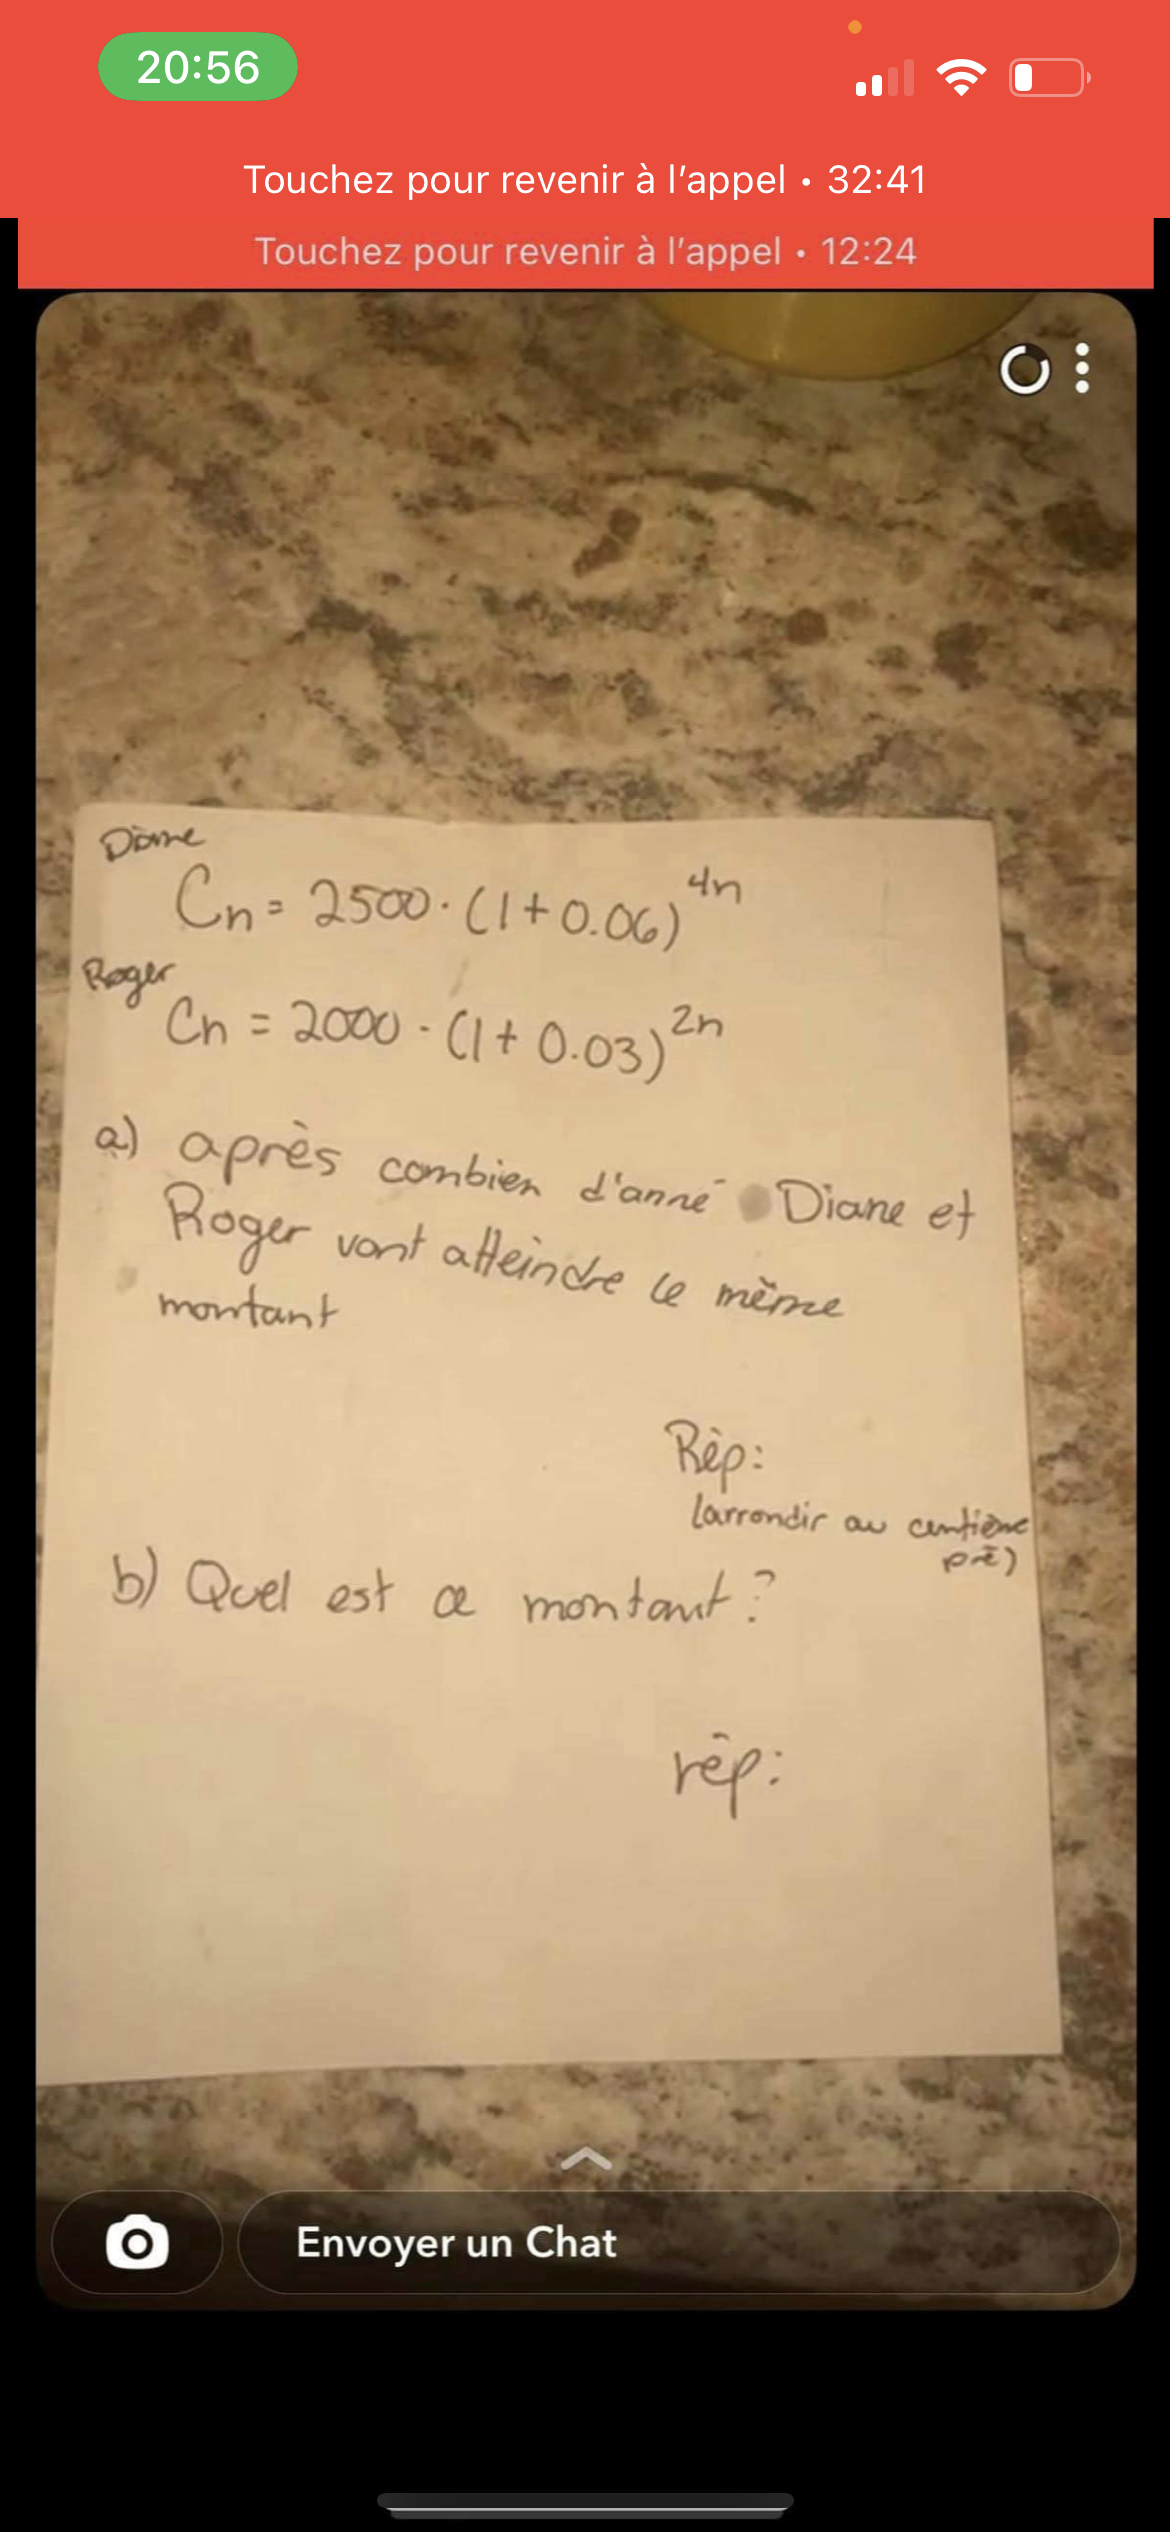 20:56
Touchez pour revenir à l'appel • 32:41
Touchez pour revenir à l'appel • 12:24
Diane
Cn = 2500 · (1 + 0.06)^4n
Roger
Cn = 2000 · (1 + 0.03)^2n
a) après combien d'anné Diane et
Roger vont atteindre le même
montant
Rép:
(arrondir au centième
prè)
b) Quel est ce montant ?
rép:
Envoyer un Chat